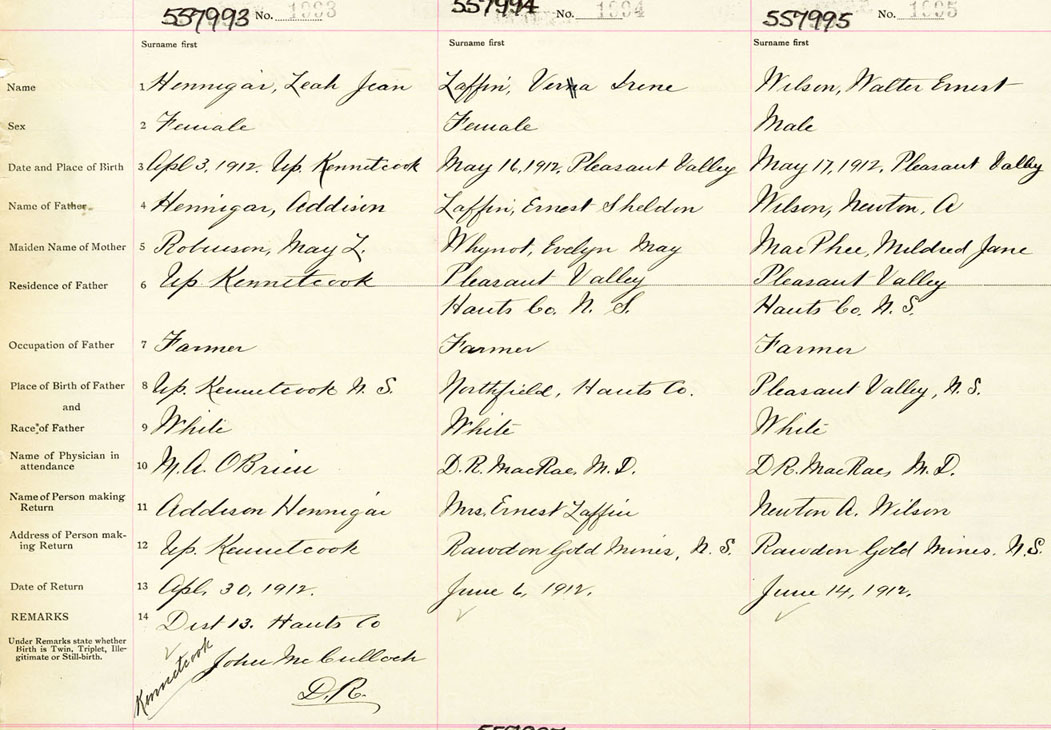 557993 No. 1993 557994 No. 1994 557995 No. 1995
Surname first Surname first Surname first
Name 1 Hennigar, Leah Jean Laffin, Verna Irene Wilson, Walter Ernest
Sex 2 Female Female Male
Date and Place of Birth 3 Apl 3, 1912. Up. Kennetcook May 16, 1912, Pleasant Valley May 17, 1912, Pleasant Valley
Name of Father 4 Hennigar, Addison Laffin, Ernest Sheldon Wilson, Newton. A
Maiden Name of Mother 5 Robinson, May L. Whynot, Evelyn May MacPhee, Mildred Jane
Residence of Father 6 Up Kennetcook Pleasant Valley Pleasant Valley
Hants Co. N. S. Hants Co. N. S.
Occupation of Father 7 Farmer Farmer Farmer
Place of Birth of Father 8 Up. Kennetcook N. S. Northfield, Hants Co. Pleasant Valley, N. S.
and
Race of Father 9 White White White
Name of Physician in
attendance 10 M. A. OBrien D. R. MacRae, M. D. D. R. MacRae, M. D.
Name of Person making
Return 11 Addison Hennigar Mrs. Ernest Laffin Newton A. Wilson
Address of Person mak-
ing Return 12 Up. Kennetcook Rawdon Gold Mines, N. S. Rawdon Gold Mines. N. S.
Date of Return 13 Apl. 30, 1912. June 6, 1912. June 14, 1912.
REMARKS 14 Dist 13. Hants Co
Under Remarks state whether
Birth is Twin, Triplet, Ille-
gitimate or Still-birth.
Kennetcook John McCulloch
D. R.